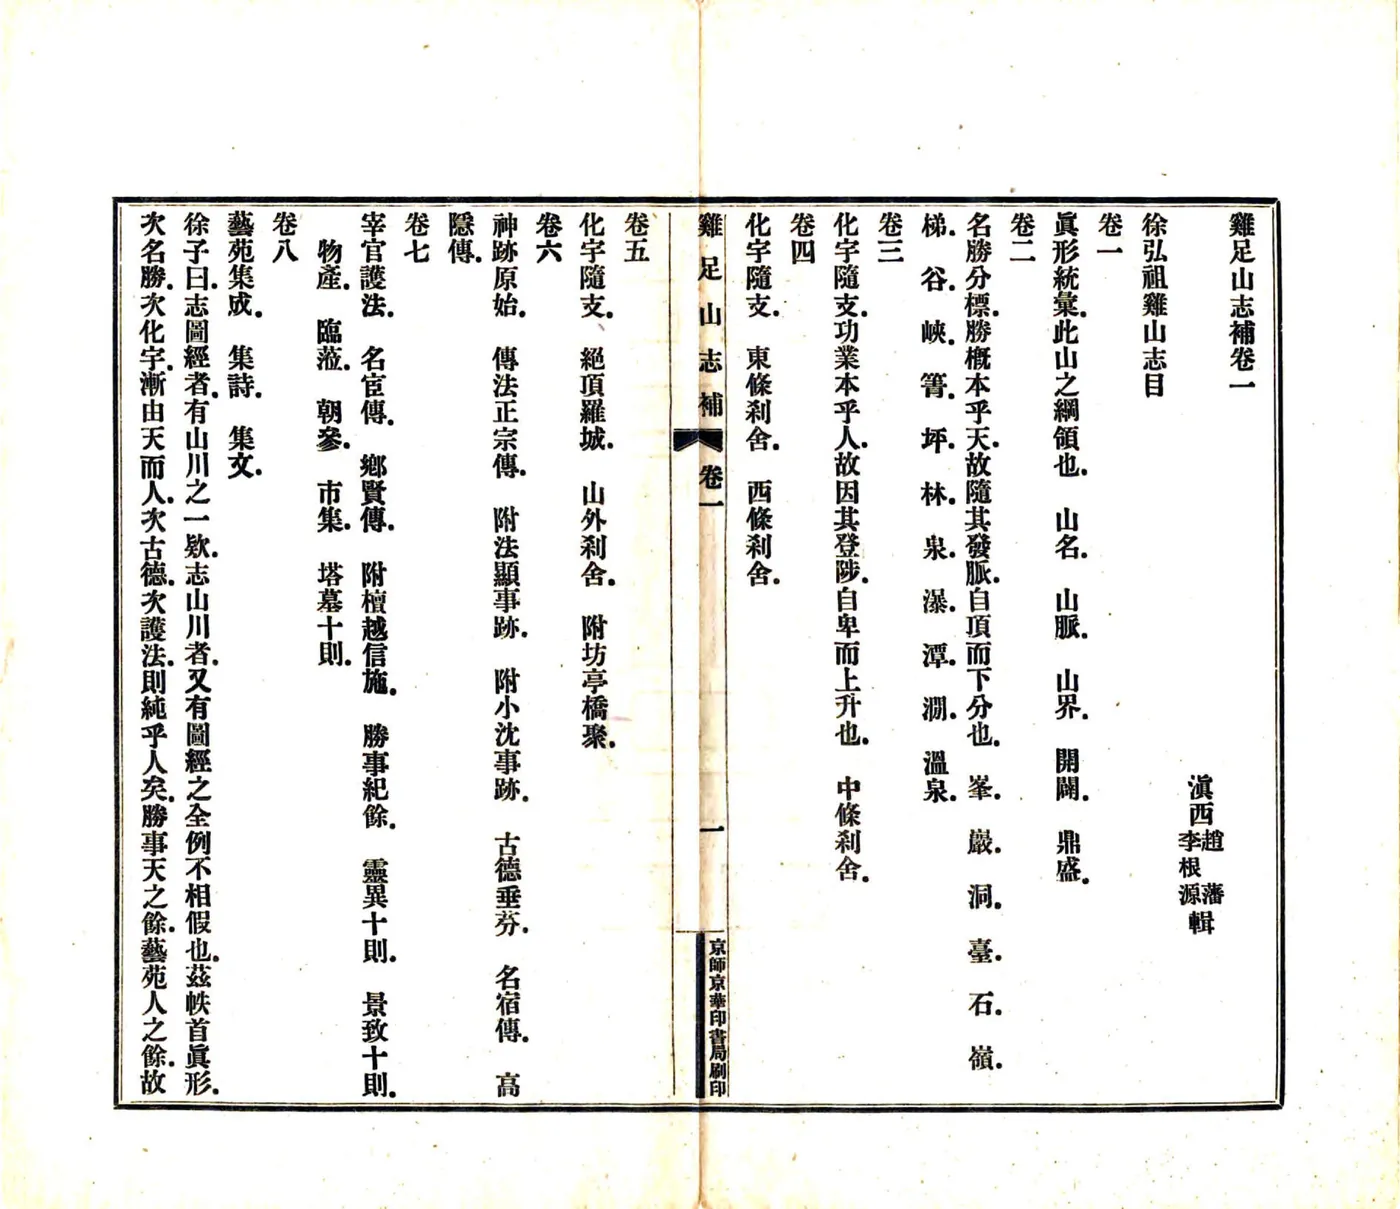 雞足山志補卷一
滇西趙藩李根源輯
徐弘祖雞山志目
卷一
眞形統彙.此山之綱領也.　山名.　山脈.　山界.　開闢.　鼎盛.
卷二
名勝分標.勝槪本乎天.故隨其發脈.自頂而下分也.　峯.　巖.　洞.　臺.　石.　嶺.
梯.　谷.　峽.　箐.　坪.　林.　泉.　瀑.　潭.　澗.　溫泉.
卷三
化宇隨支.功業本乎人.故因其登陟.自卑而上升也.　中條刹舍.
卷四
化宇隨支.　東條刹舍.　西條刹舍.
雞足山志補　卷一　一　京師京華印書局刷印
卷五
化宇隨支.　絕頂羅城.　山外刹舍.　附坊亭橋聚.
卷六
神跡原始.　傳法正宗傳.　附法顯事跡.　附小沈事跡.　古德垂芬.　名宿傳.　高
隱傳.
卷七
宰官護法.　名宦傳.　鄕賢傳.　附檀越信施.　勝事紀餘.　靈異十則.　景致十則.
物產.　臨蒞.　朝參.　市集.　塔墓十則.
卷八
藝苑集成.　集詩.　集文.
徐子曰.志圖經者.有山川之一欵.志山川者.又有圖經之全例不相假也.茲帙首眞形.
次名勝.次化宇.漸由天而人.次古德.次護法.則純乎人矣.勝事天之餘.藝苑人之餘.故